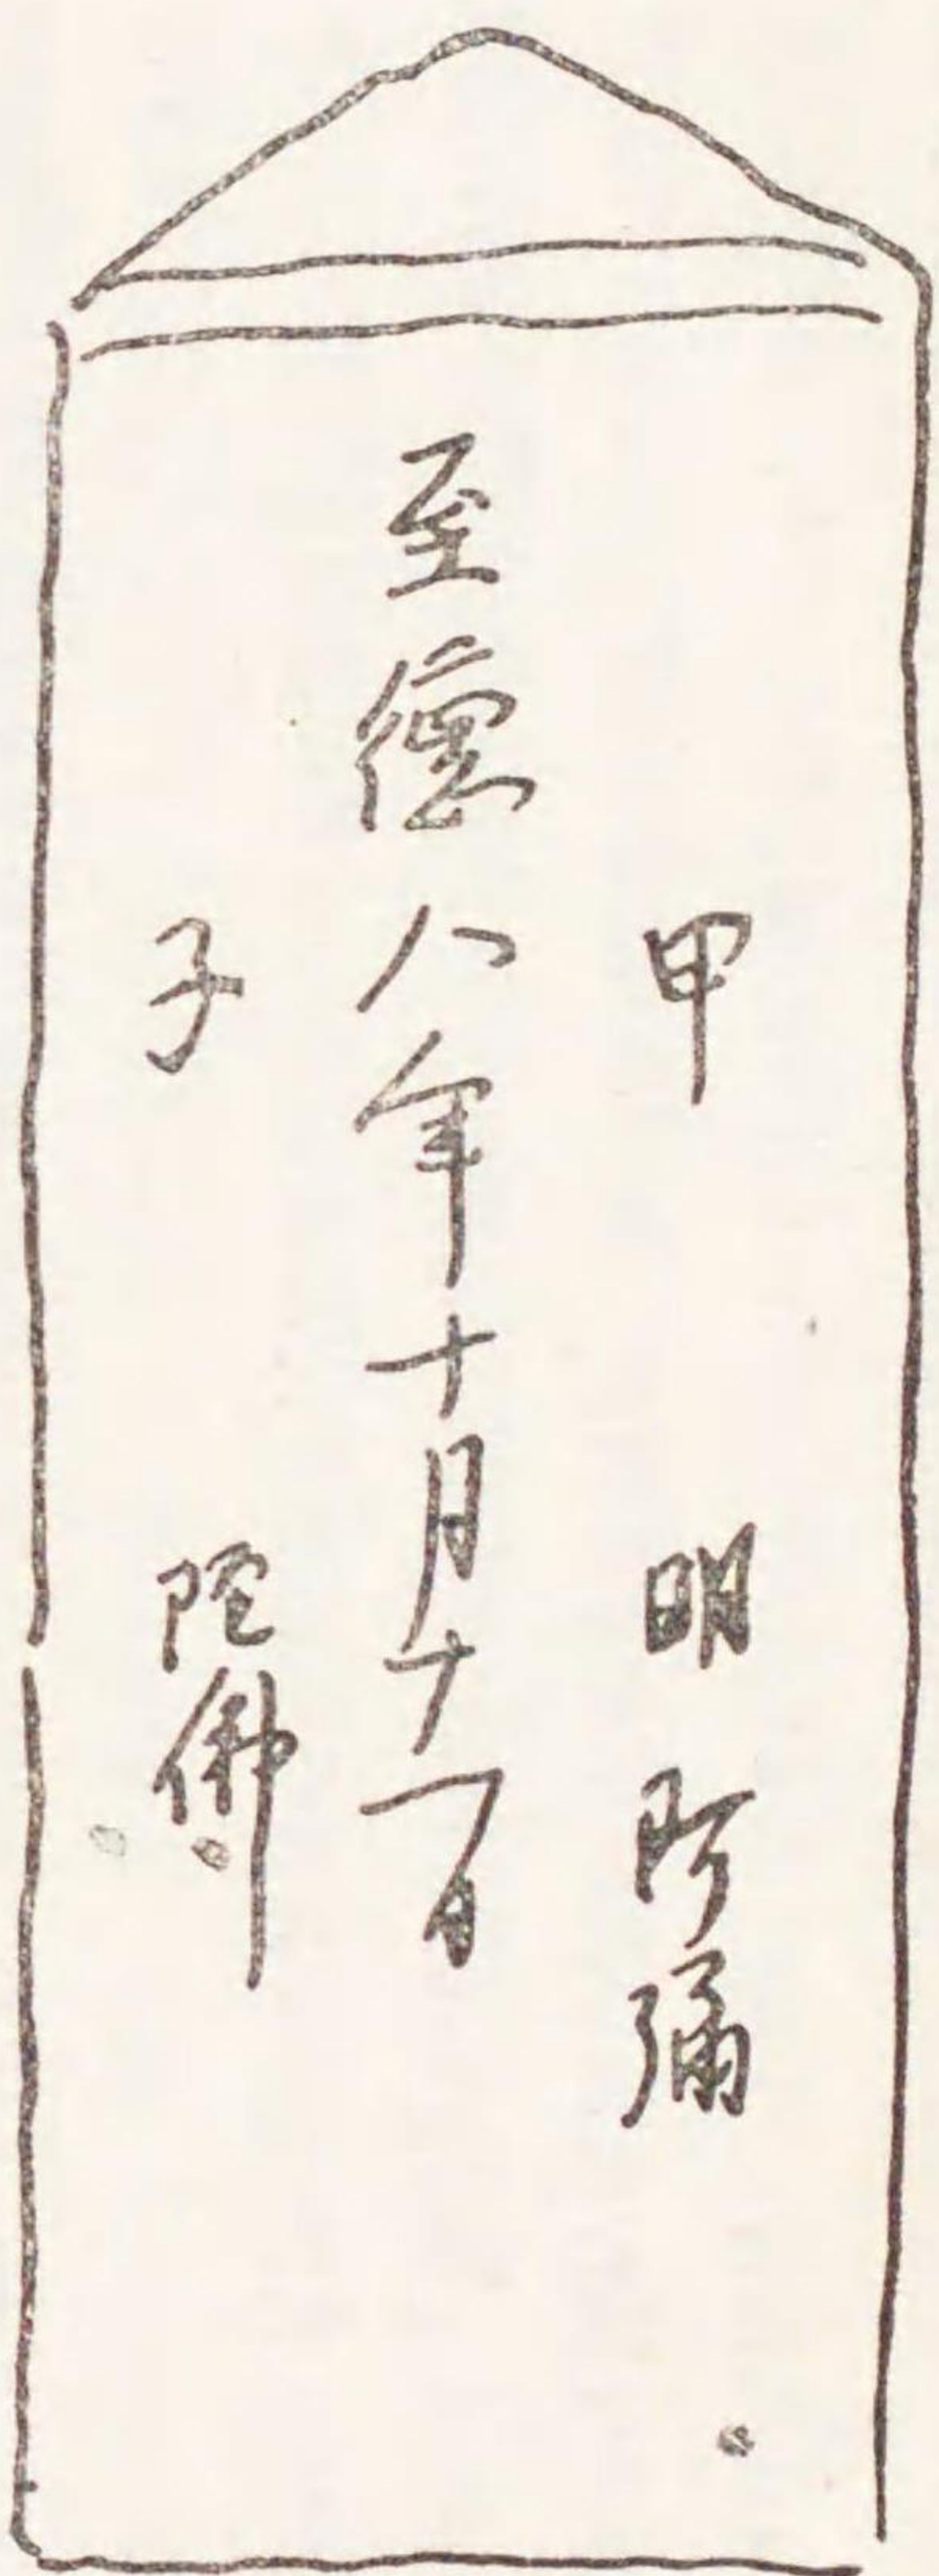 甲 明阿彌
至德八年十月十一日
子 陀佛